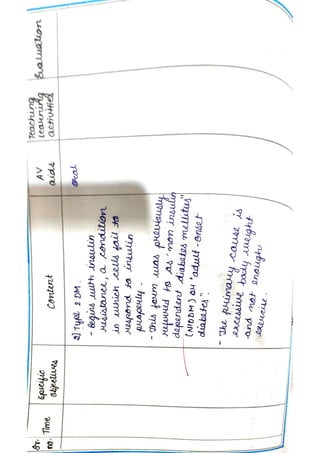 Sr. no.
Time
Specific objectives
Content
AV aids
Teaching learning activities
Evaluation
2) Type 2 DM.
- Begins with insulin
resistance, a condition
in which cells fail to
respond to insulin
properly.
- This form was previously
referred to as "non insulin
dependent diabetes mellitus"
(NIDDM) or "adult-onset
diabetes".
- The primary cause is
excessive body weight
and not enough
exercise.
oral